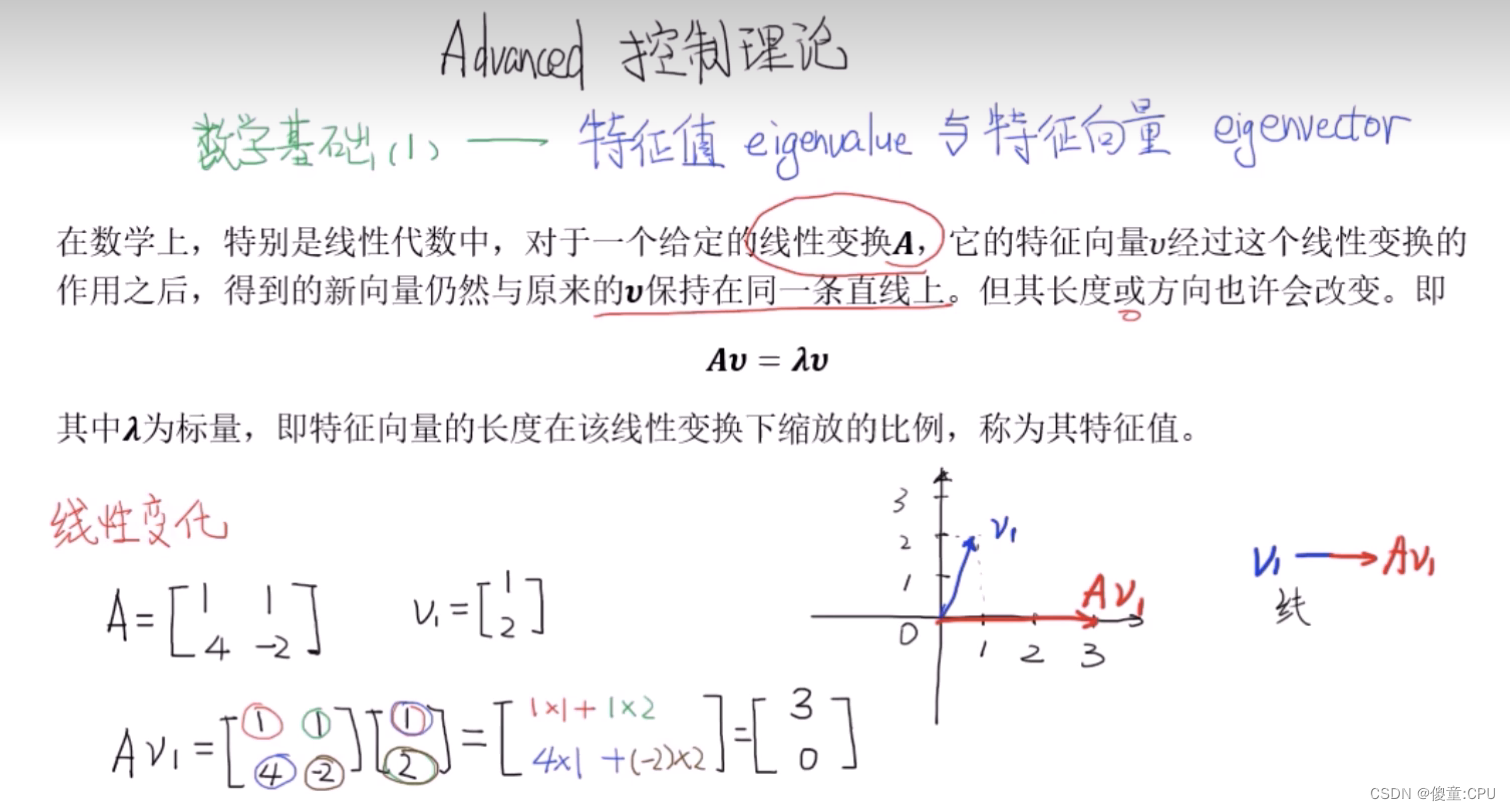 Advanced 控制理论
数学基础(1) —— 特征值 eigenvalue 与特征向量 eigenvector
在数学上，特别是线性代数中，对于一个给定的线性变换A，它的特征向量υ经过这个线性变换的
作用之后，得到的新向量仍然与原来的υ保持在同一条直线上。但其长度或方向也许会改变。即
Aυ = λυ
其中λ为标量，即特征向量的长度在该线性变换下缩放的比例，称为其特征值。
线性变化
A = [1 1; 4 -2] v₁ = [1; 2]
Av₁ = [1 1; 4 -2][1; 2] = [1×1+1×2; 4×1+(-2)×2] = [3; 0]
3
2
1
0 1 2 3
v₁
Av₁
v₁ → Av₁
线
CSDN @傻童:CPU